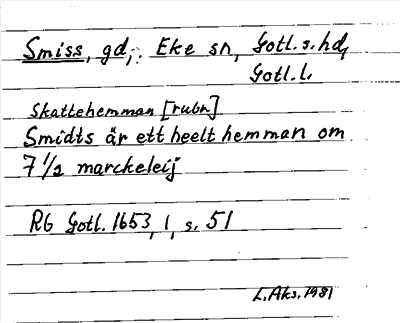 Smiss, gd, Eke sn, Gotl. s. hd,
Gotl. l.
Skattehemman [rubr]
Smidts är ett heelt hemman om
7 1/2 marckeleij
RG Gotl. 1653, 1, s. 51
L. Aks. 1981